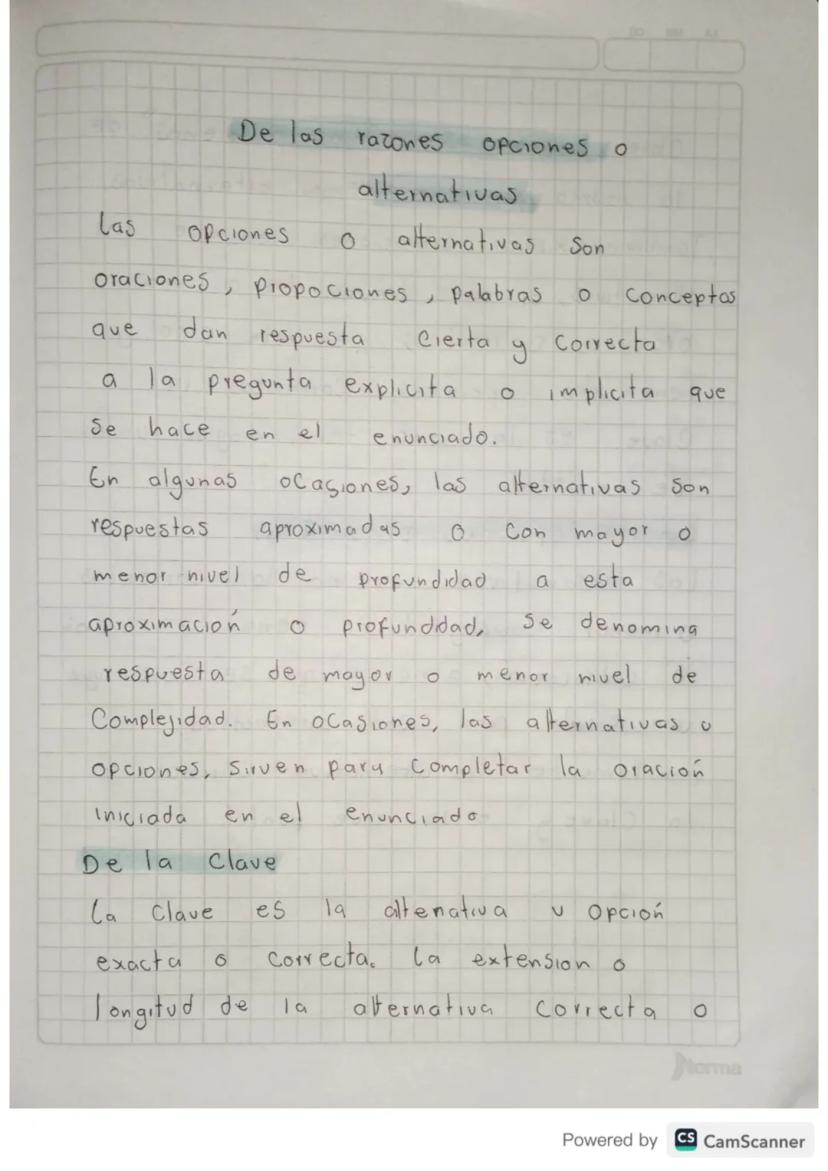 DD MM AA
De las razones opciones o
alternativas
Las opciones o alternativas son
oraciones, propociones, palabras o conceptos
que dan respuesta cierta y correcta
a la pregunta explicita o implicita que
se hace en el enunciado.
En algunas ocasiones, las alternativas son
respuestas aproximadas o con mayor o
menor nivel de profundidad a esta
aproximación o profundidad, se denomina
respuesta de mayor o menor nivel de
Complejidad. En ocasiones, las alternativas u
opciones, sirven para completar la oración
iniciada en el enunciado
De la Clave
La Clave es la altenativa u opción
exacta o correcta. La extension o
longitud de la alternativa correcta o
Norma
Powered by CS CamScanner